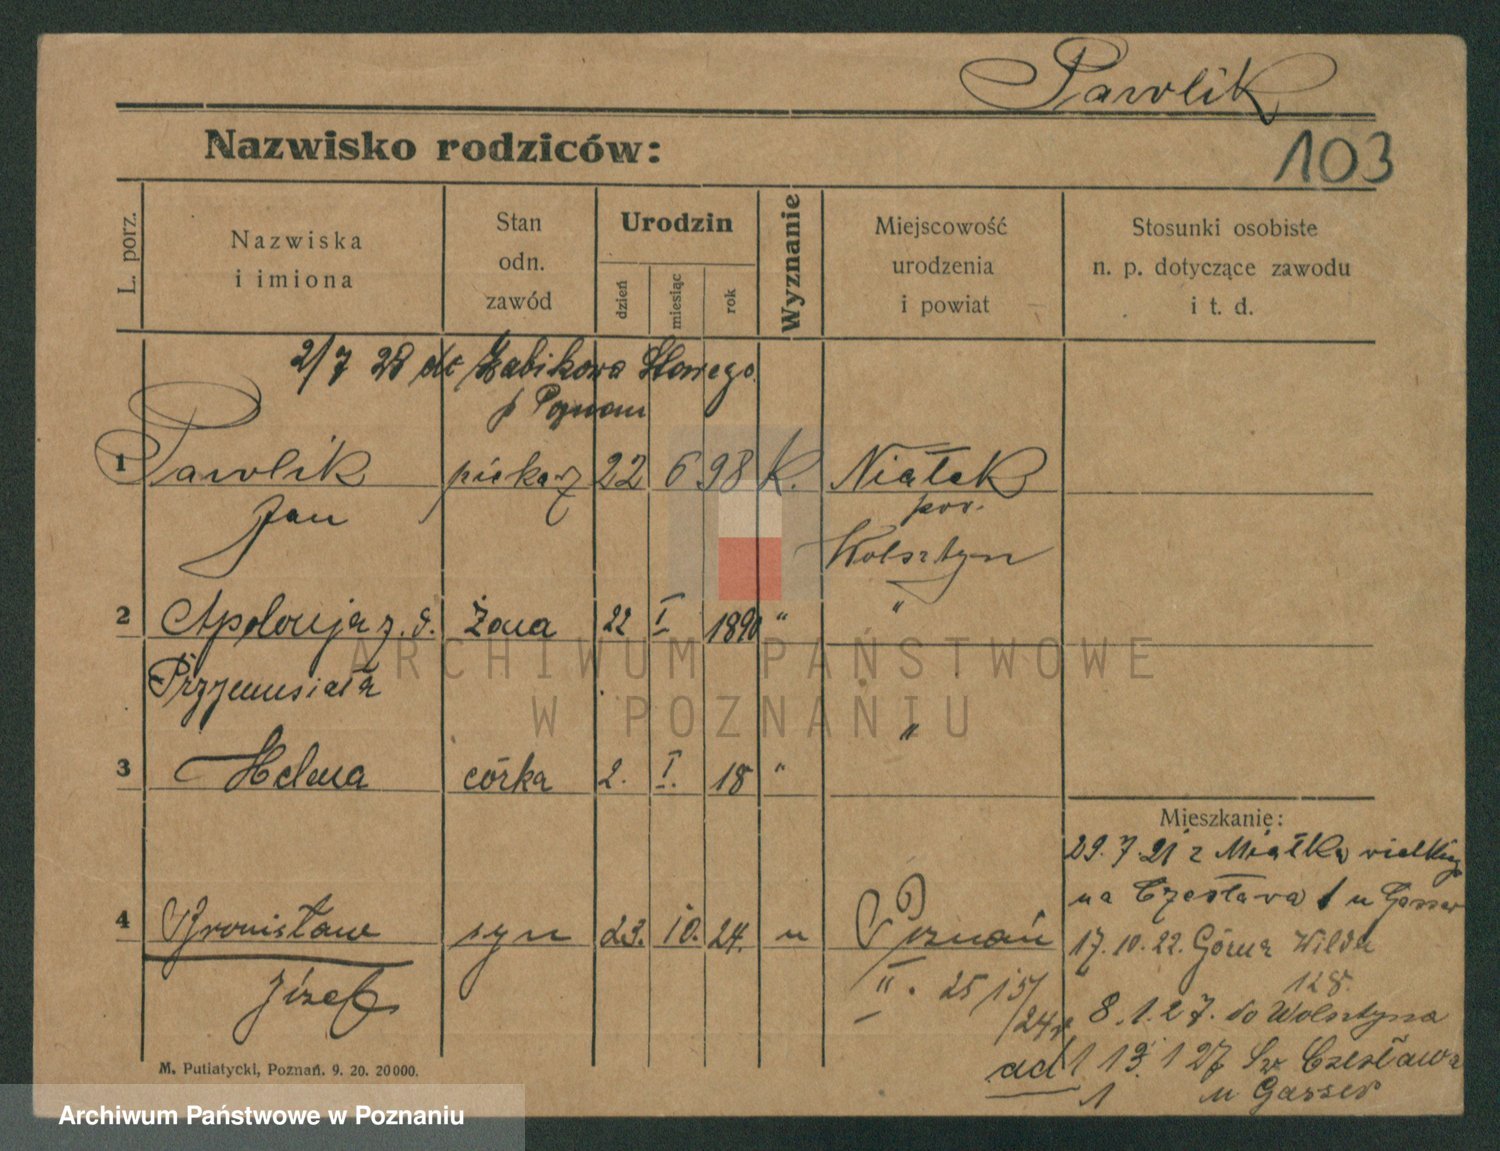 Pawlik
Nazwisko rodziców:
103
L. porz.
Nazwiska
i imiona
Stan
odn.
zawód
Urodzin
dzień
miesiąc
rok
Wyznanie
Miejscowość
urodzenia
i powiat
Stosunki osobiste
n. p. dotyczące zawodu
i t. d.
2/7 28 do Żabikowa
p Poznan
1 Pawlik piekarz 22 6 98 K. Niałek
Jan pow.
Wolsztyn
2 Apolonja z. d. Żona 22 I 1890 " "
Przymusiała
3 Helena córka 2. I. 18 " "
Mieszkanie:
29. 7. 21 z Niałka wielkieg
na Czesława 1 u Gasser
4 Bronisław syn 23. 10. 24. " Poznań
17. 10. 22. Górna Wilda
128.
Józef II. 25 15/
/24
8. 1. 27. do Wolsztyna
ad 1 13. 1 27 Św. Czesława
1 u Gasser
M. Putiatycki, Poznań. 9. 20. 20000.
ARCHIWUM PAŃSTWOWE
W POZNANIU
Archiwum Państwowe w Poznaniu